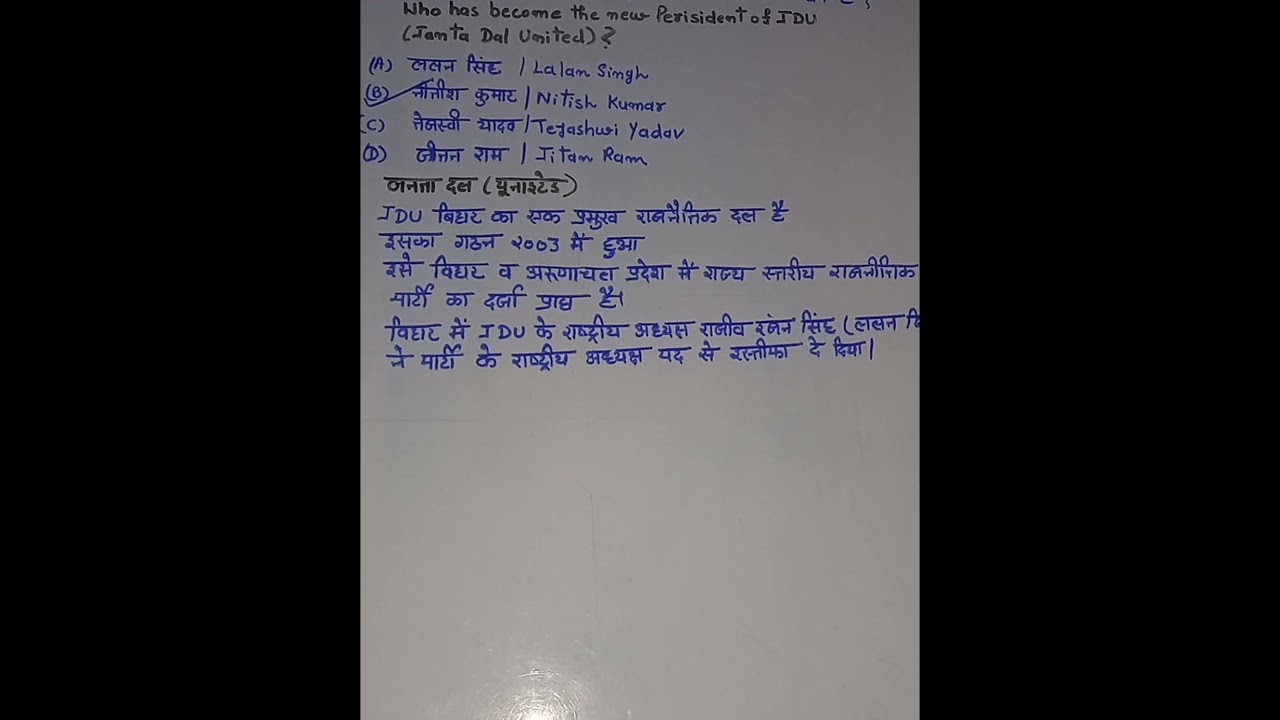 Who has become the new Perisident of JDU
(Janta Dal United)?
(A) ललन सिंह / Lalan Singh
(B) नीतीश कुमार / Nitish Kumar
(C) तेजस्वी यादव / Tejashwi Yadav
(D) जीतन राम / Jitan Ram
जनता दल (यूनाइटेड)
JDU बिहार का एक प्रमुख राजनैतिक दल है
इसका गठन २००3 में हुआ
इसे बिहार व अरुणाचल प्रदेश में राज्य स्तरीय राजनीतिक
पार्टी का दर्जा प्राप्त है।
बिहार में JDU के राष्ट्रीय अध्यक्ष राजीव रंजन सिंह (ललन
ने पार्टी के राष्ट्रीय अध्यक्ष पद से इस्तीफा दे दिया।